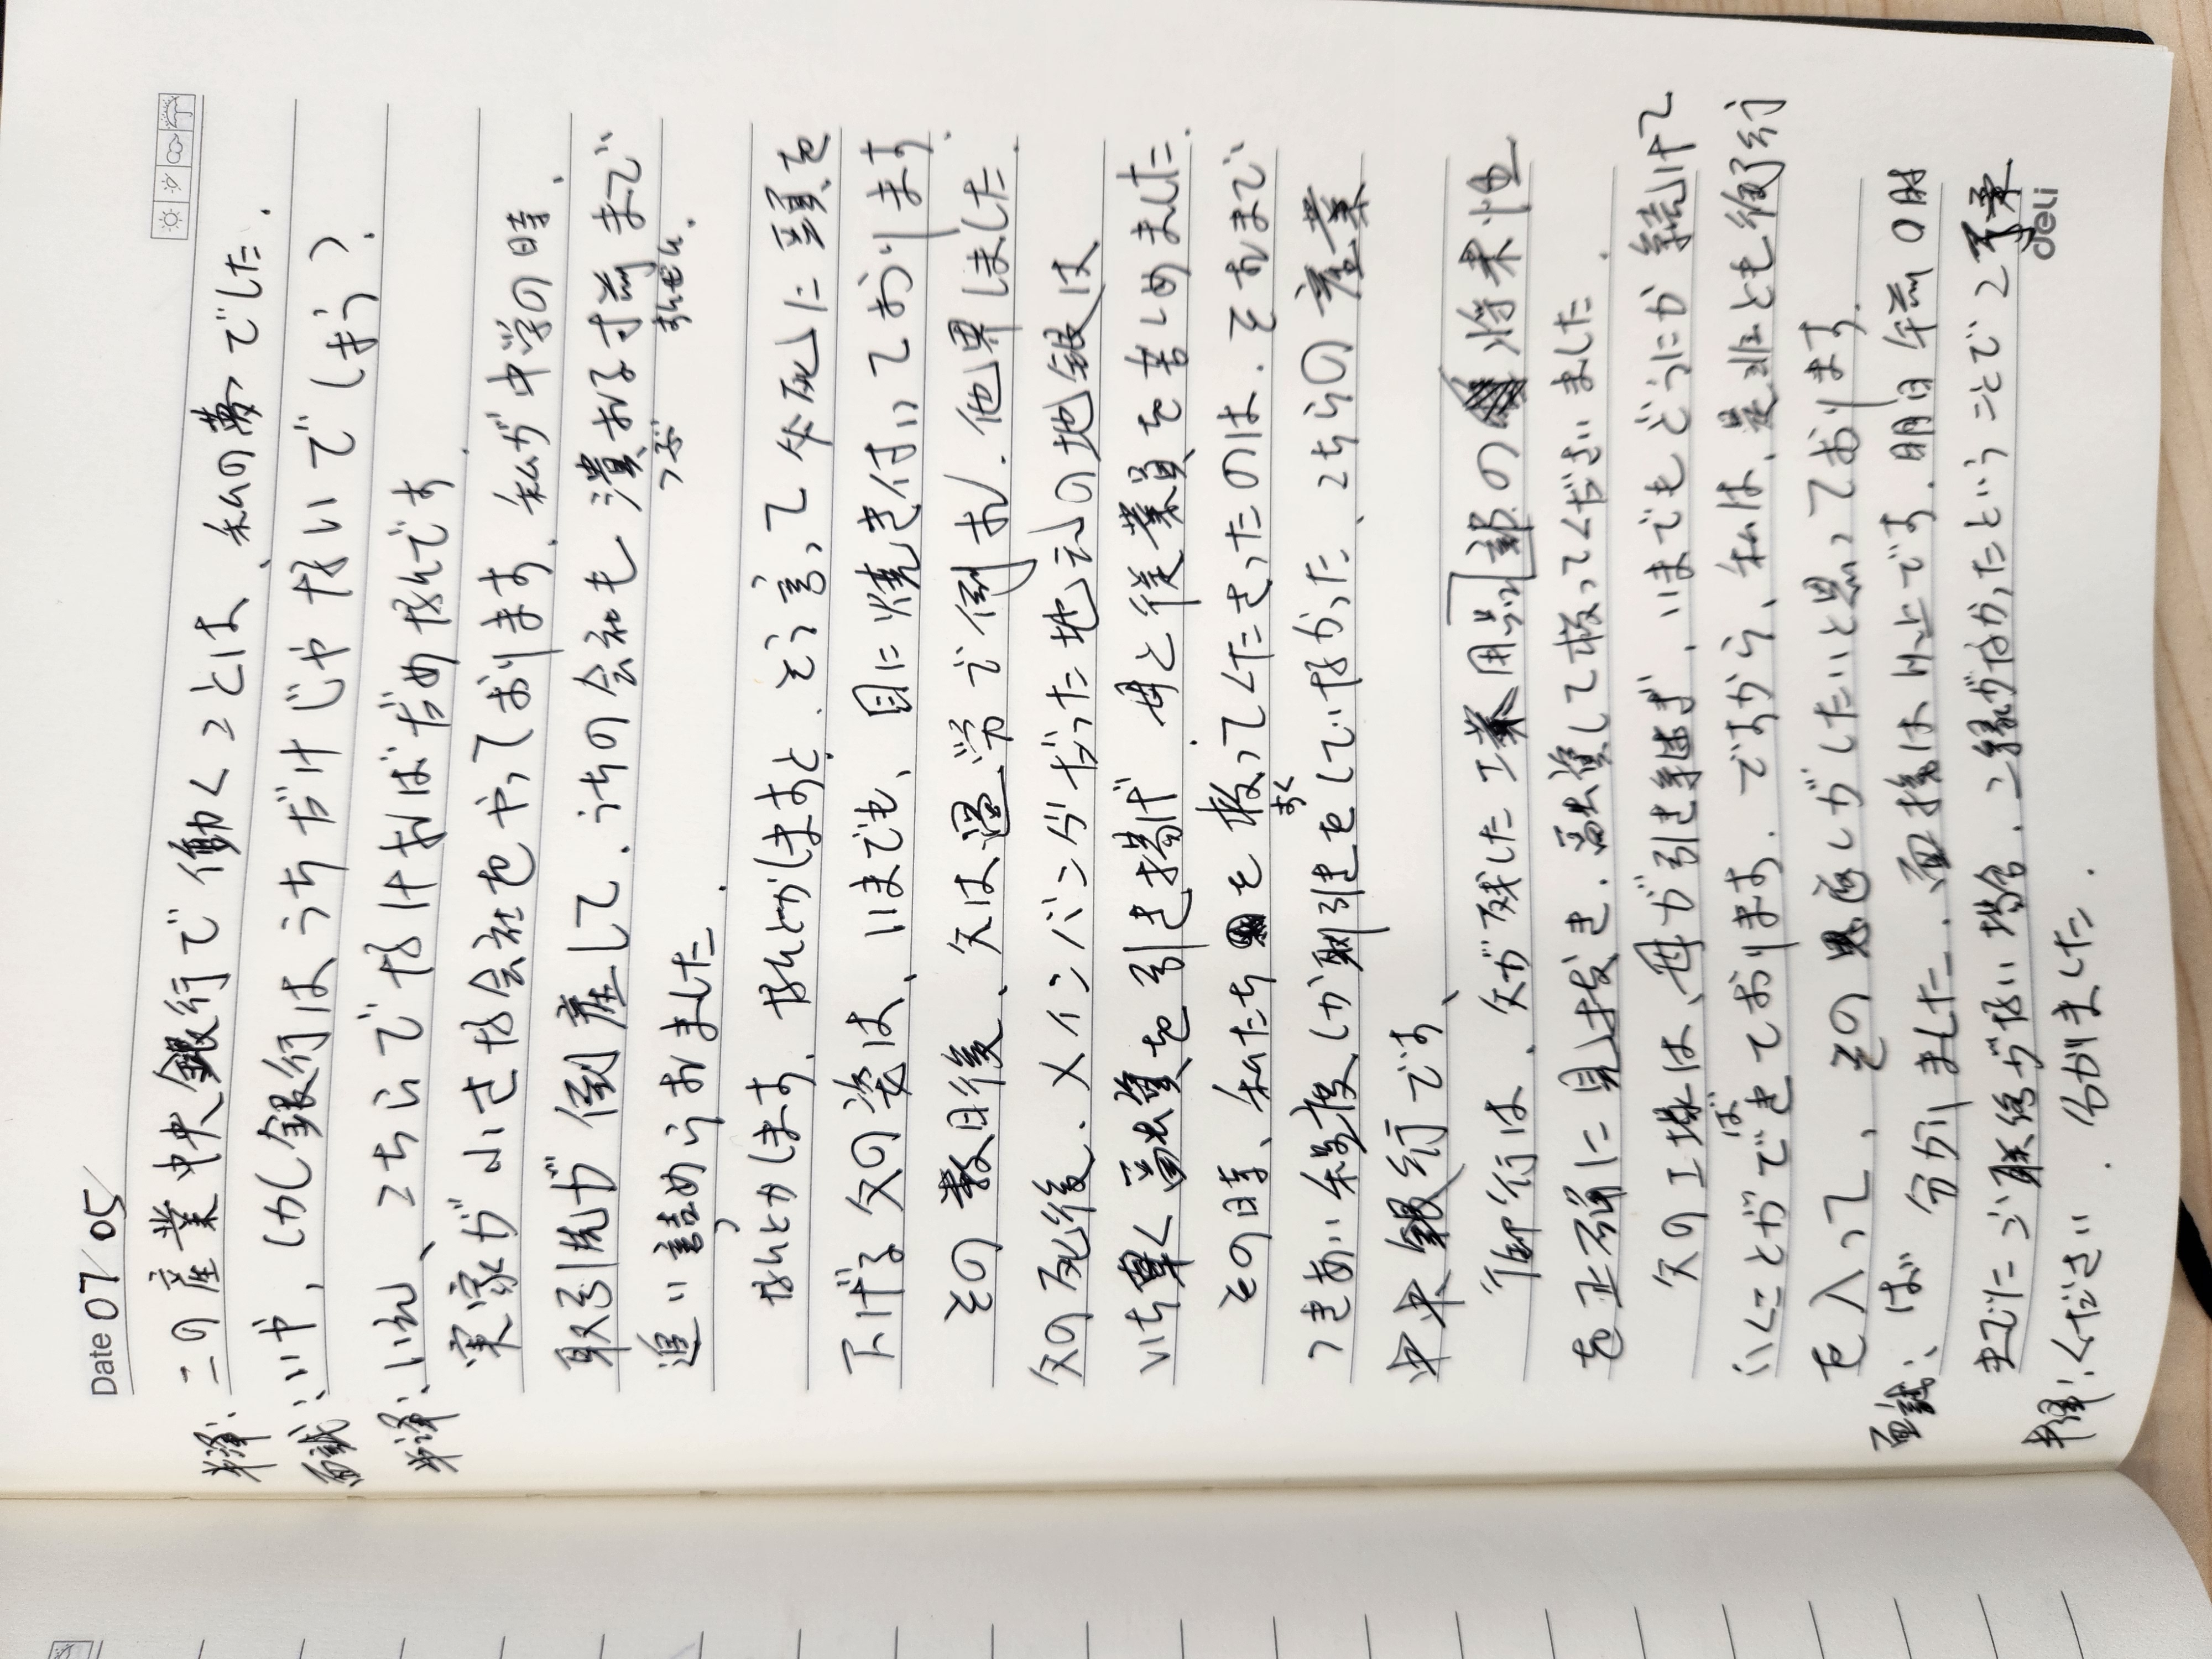 Date 07/05
半澤:この産業中央銀行で働くことは、私の夢でした.
面試:いや、しかし銀行はうちだけじゃないでしょう?
半澤:いえ、こちらでなければだめなんです.
実家が小さな会社をやっております. 私が中学の時、
取引先が倒産して、うちの会社も潰れる寸前まで
つぶ すんぜん.
追い詰められました.
つ
なんとかします. なんとかしますと. そう言って必死に頭を
下げる父の姿は、いまでも、目に焼き付いております.
その数日後、父は過労で倒れ. 他界しました.
父の死後. メインバンクだった地元の地銀は
いち早く融資を引き揚げ. 母と従業員を苦しめました.
その時、私たちを救ってくださったのは. それまで
すく
つきあい程度しか取引をしてなかった、こちらの産業
中央銀行です、
御行は、父が残した工業用品部の将来性
を正確に見抜き. 融資して救ってくださいました.
父の工場は、母が引き継ぎ、いまでもどうにか続けて
いくことができております. ですから、私は、是非とも御行
ば
を入って、その恩返しがしたいと思っております.
面試:ば 分かりました. 面接は以上です. 明日午前0時
までにご連絡がない場合. ご縁がなかったということでご了承
半澤:ください. 分かりました.
deli